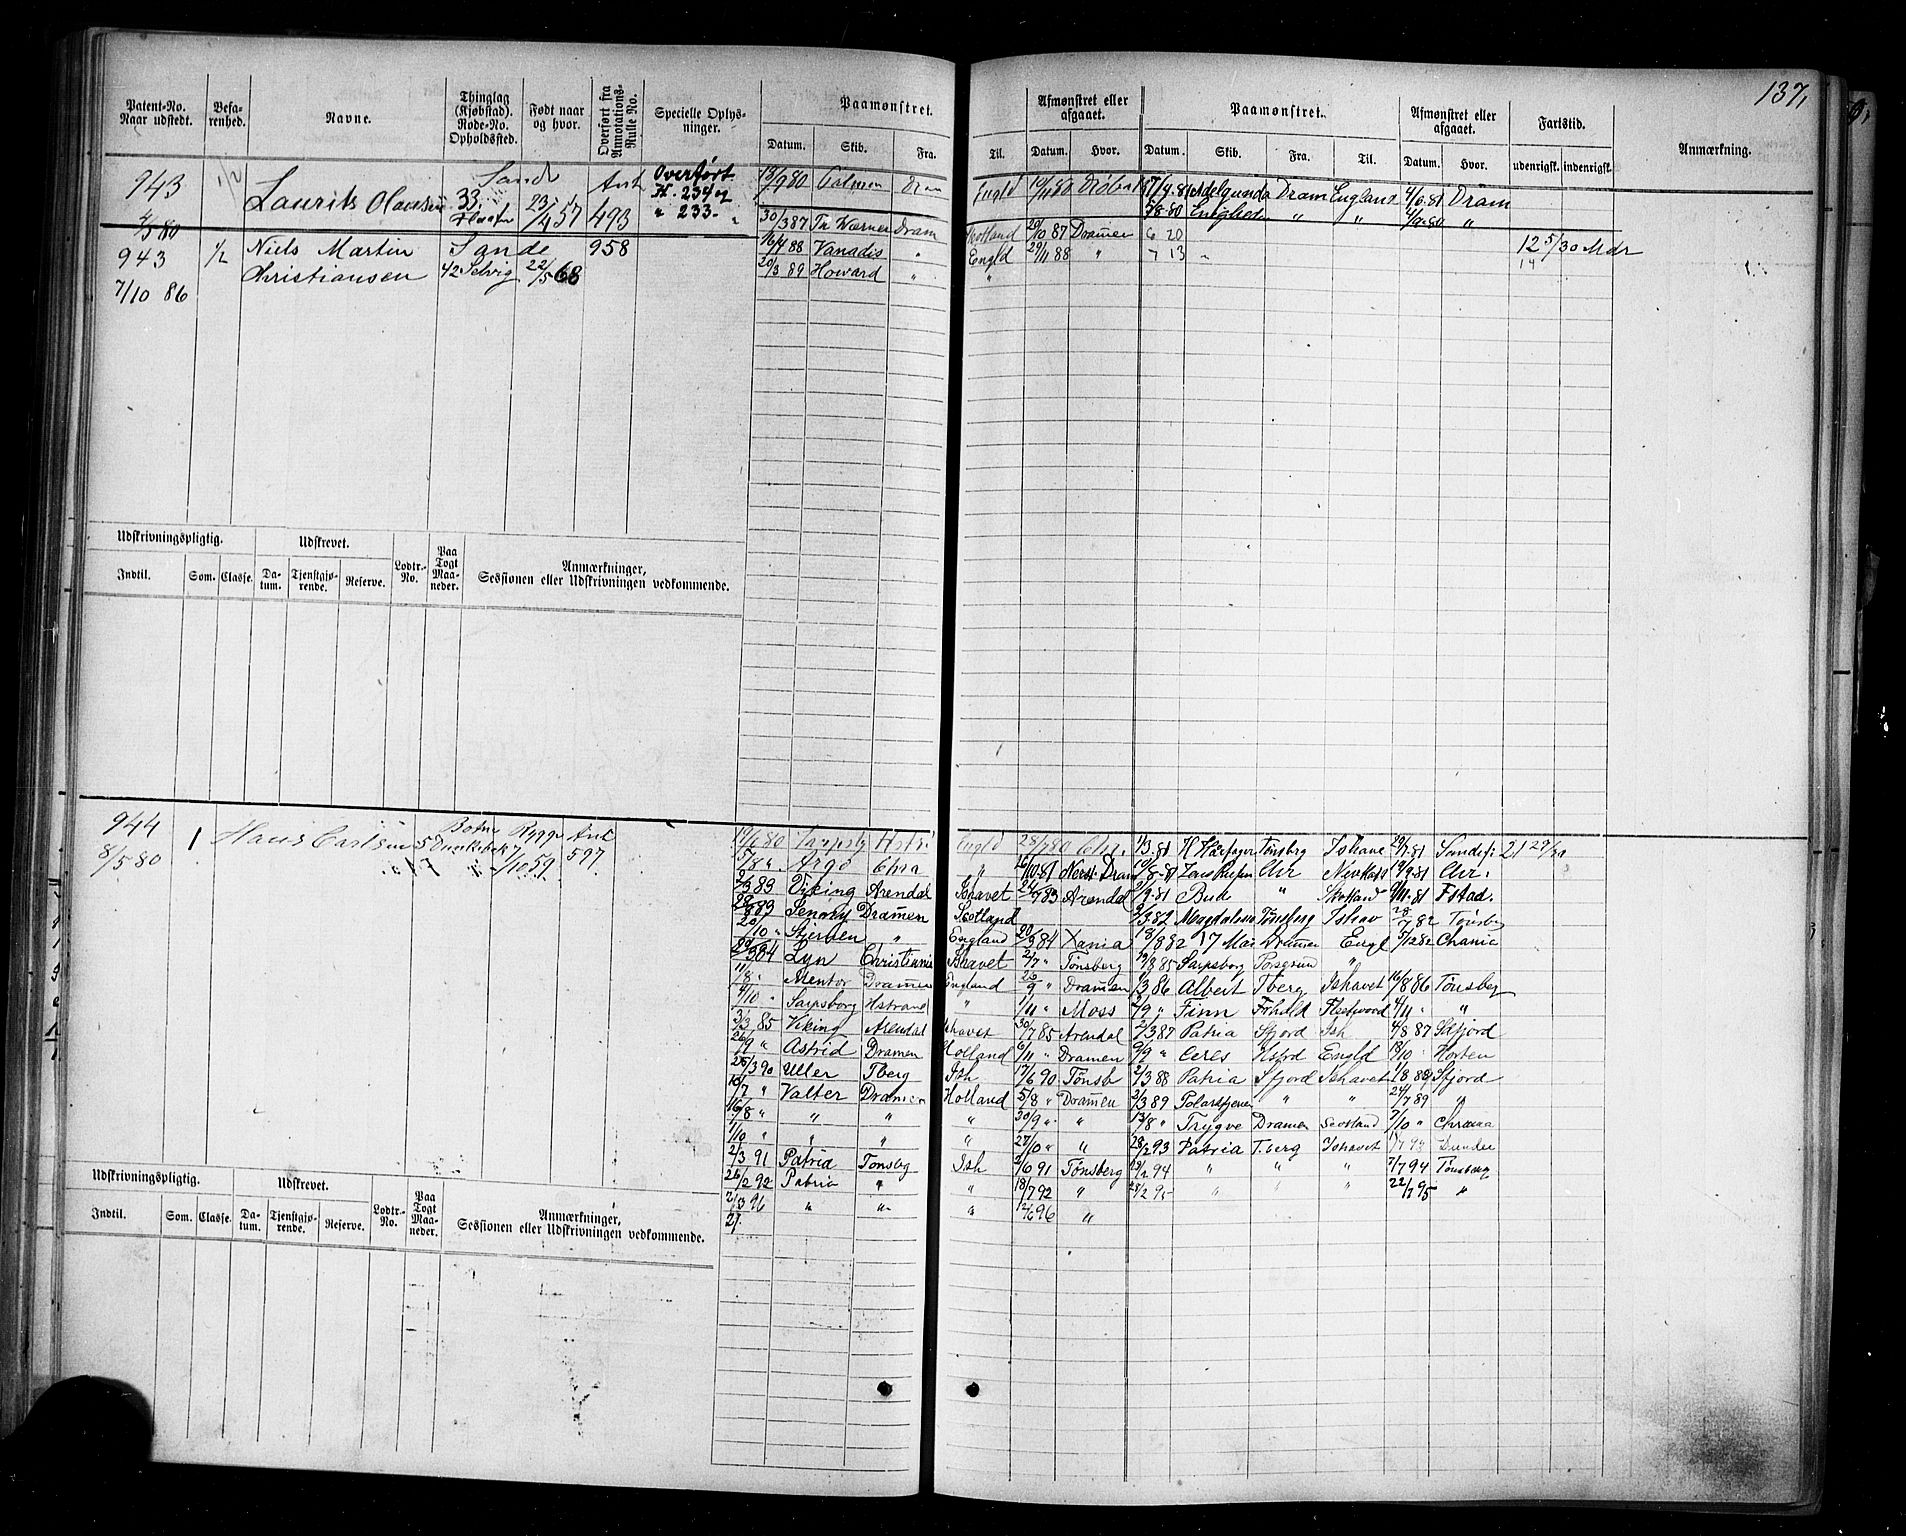 137,
Patent-No. Naar udstedt.
Befarenhed.
Navne.
Thinglag (Kjøbstad). Rode-No. Opholdssted.
Født naar og hvor.
Overført fra Annotations-Rulle No.
Specielle Oplysninger.
Paamønstret.
Datum. Skib. Fra. Til.
Afmønstret eller afgaaet.
Datum. Hvor.
Paamønstret.
Datum. Skib. Fra. Til.
Afmønstret eller afgaaet.
Datum. Hvor.
Fartstid.
udenrigsk. indenrigsk.
Anmærkning.
943 1/2 Laurits Olausen Sande 33. 23/4 57 Ant 493 Overført H. 234 og " 233.
4/5 80
Engld 19/11 80 Adelgunda Dram England 4/6 81 Dram
5/8 80 Enighed " " 4/9 80 "
943 1/2 Niels Martin Christiansen Sande 42 Selvig 22/5 68 958
7/10 86
30/3 87 Th Wærner Dram Scotland 29/10 87 Dramen 6 20
16/4 88 Vanadis " Engld 29/11 88 " 7 13
20/3 89 Howard " "
12 5/30 Mdr
14
Udskrivningspligtig. Udskrevet. Lodtr.-No. Paa Togt Maaneder. Anmærkninger, Sessionen eller Udskrivningen vedkommende.
Indtil. Som. Classe. Datum. Tjenstgjørende. Reserve.
944 1 Hans Carlsen Botne 5 Rygg 7/10 59 Ant 597
8/5 80
19/6 80 Engld 28/7 80 Chr. 1/3 81 Tønsberg Ishavet 29/7 81 Sandefj 21 27/30
5/8 " Argo Chra " 16/10 81 10/8 81 19/9 81
2/3 83 Viking Arendal Ishavet 24/7 83 Arendal 2/9 81 Bud " Skotland 9/11 81 Fstad.
28/8 83 Jenny Dramen Scotland 2/3 82 Magdalena Tønsberg Ishav 28/7 82 Tønsbg
20/10 " Stjernen " England 20/3 84 Xania 18/8 82 17 Mai Dramen Engl 5/12 82 Chania
29/3 84 Lyn Christiania Ishavet 2/7 " Tønsberg 19/8 85 Sarpsborg Porsgrund "
11/8 " Mentor Dramen England 26/9 " Dramen 1/3 86 Albert Tberg Ishavet 16/8 86 Tønsbeg
9/10 " Sarpsborg Hstrand " 1/11 " Moss 2/9 " Finn Fleetwood 4/11 " "
3/3 85 Viking Arendal Ishavet 30/7 85 Arendal 2/3 87 Patria Sfjord Ish 4/8 87 Sfjord
26/9 " Astrid Dramen Holland 6/11 " Dramen 9/9 " Ceres Hstrd Engld 18/10 " Horten
25/3 90 Uller Tberg Ish 17/6 90 Tønsb 2/3 88 Patria Sfjord Ishavet 1/8 88 Sfjord
18/7 " Valter Dramen Holland 5/8 " Dramen 2/3 89 Polarstjernen " " 24/7 89 "
16/8 " " " " 30/9 " " 13/8 " Trygve Dramen Scotland 7/10 " Chrania
1/10 " " " " 27/10 " " 28/2 93 Patria Tberg Ishavet 93 Dundee
2/3 91 Patria Tønsbg Ish 2/6 91 Tønsberg 29/2 94 " " " 7/7 94 Tønsberg
26/2 92 Patria " " 18/7 92 " 28/2 95 " " " 22/7 95 "
2/3 96 " " " 12/6 96 "
27.
Udskrivningspligtig. Udskrevet. Lodtr.-No. Paa Togt Maaneder. Anmærkninger, Sessionen eller Udskrivningen vedkommende.
Indtil. Som. Classe. Datum. Tjenstgjørende. Reserve.